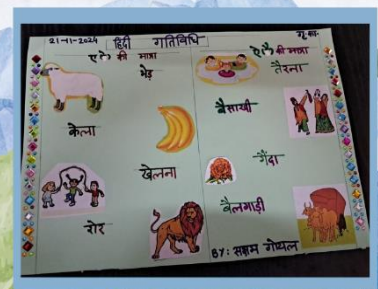 21-11-2024 हिंदी गतिविधि गृ.का.
ए (े) की मात्रा
भेड़
केला
खेलना
शेर
ऐ (ै) की मात्रा
तैरना
बैसाखी
गैंदा
बैलगाड़ी
BY: सक्षम गोयल